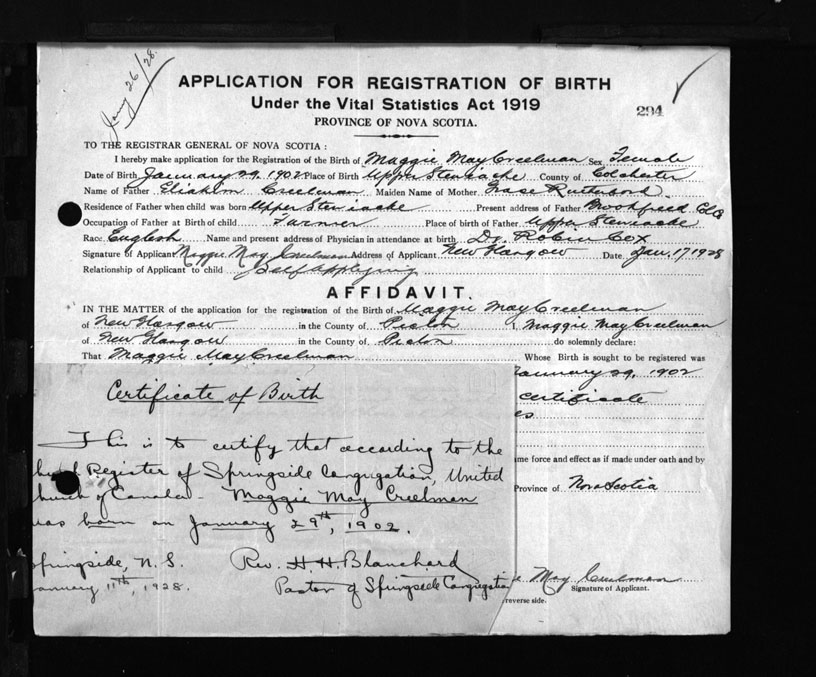 Jany 26/28.
APPLICATION FOR REGISTRATION OF BIRTH
Under the Vital Statistics Act 1919
294
PROVINCE OF NOVA SCOTIA.
TO THE REGISTRAR GENERAL OF NOVA SCOTIA :
I hereby make application for the Registration of the Birth of Maggie May Creelman Sex Female
Date of Birth January 29, 1902 Place of Birth Upper Stewiacke County of Colchester
Name of Father Eliakim Creelman Maiden Name of Mother
Residence of Father when child was born Upper Stewiacke Present address of Father Brookfield Col Co
Occupation of Father at Birth of child Farmer Place of birth of Father Upper Stewiacke
Race English Name and present address of Physician in attendance at birth Dr. Robin Cox
Signature of Applicant Maggie May Creelman Address of Applicant New Glasgow Date Jan. 17 1928
Relationship of Applicant to child Self applying
AFFIDAVIT.
IN THE MATTER of the application for the registration of the Birth of Maggie May Creelman
of New Glasgow in the County of Pictou I Maggie May Creelman
of New Glasgow in the County of Pictou do solemnly declare:
That Maggie May Creelman Whose Birth is sought to be registered was
January 29, 1902
certificate
es
me force and effect as if made under oath and by
Province of Nova Scotia
May Creelman
Signature of Applicant.
reverse side.
Certificate of Birth
This is to certify that according to the
Register of Springside Congregation, United
hurch of Canada - Maggie May Creelman
was born on January 29th, 1902.
Springside, N.S. Rev. H. H. Blanchard
anuary 11th, 1928. Pastor of Springside Congregation